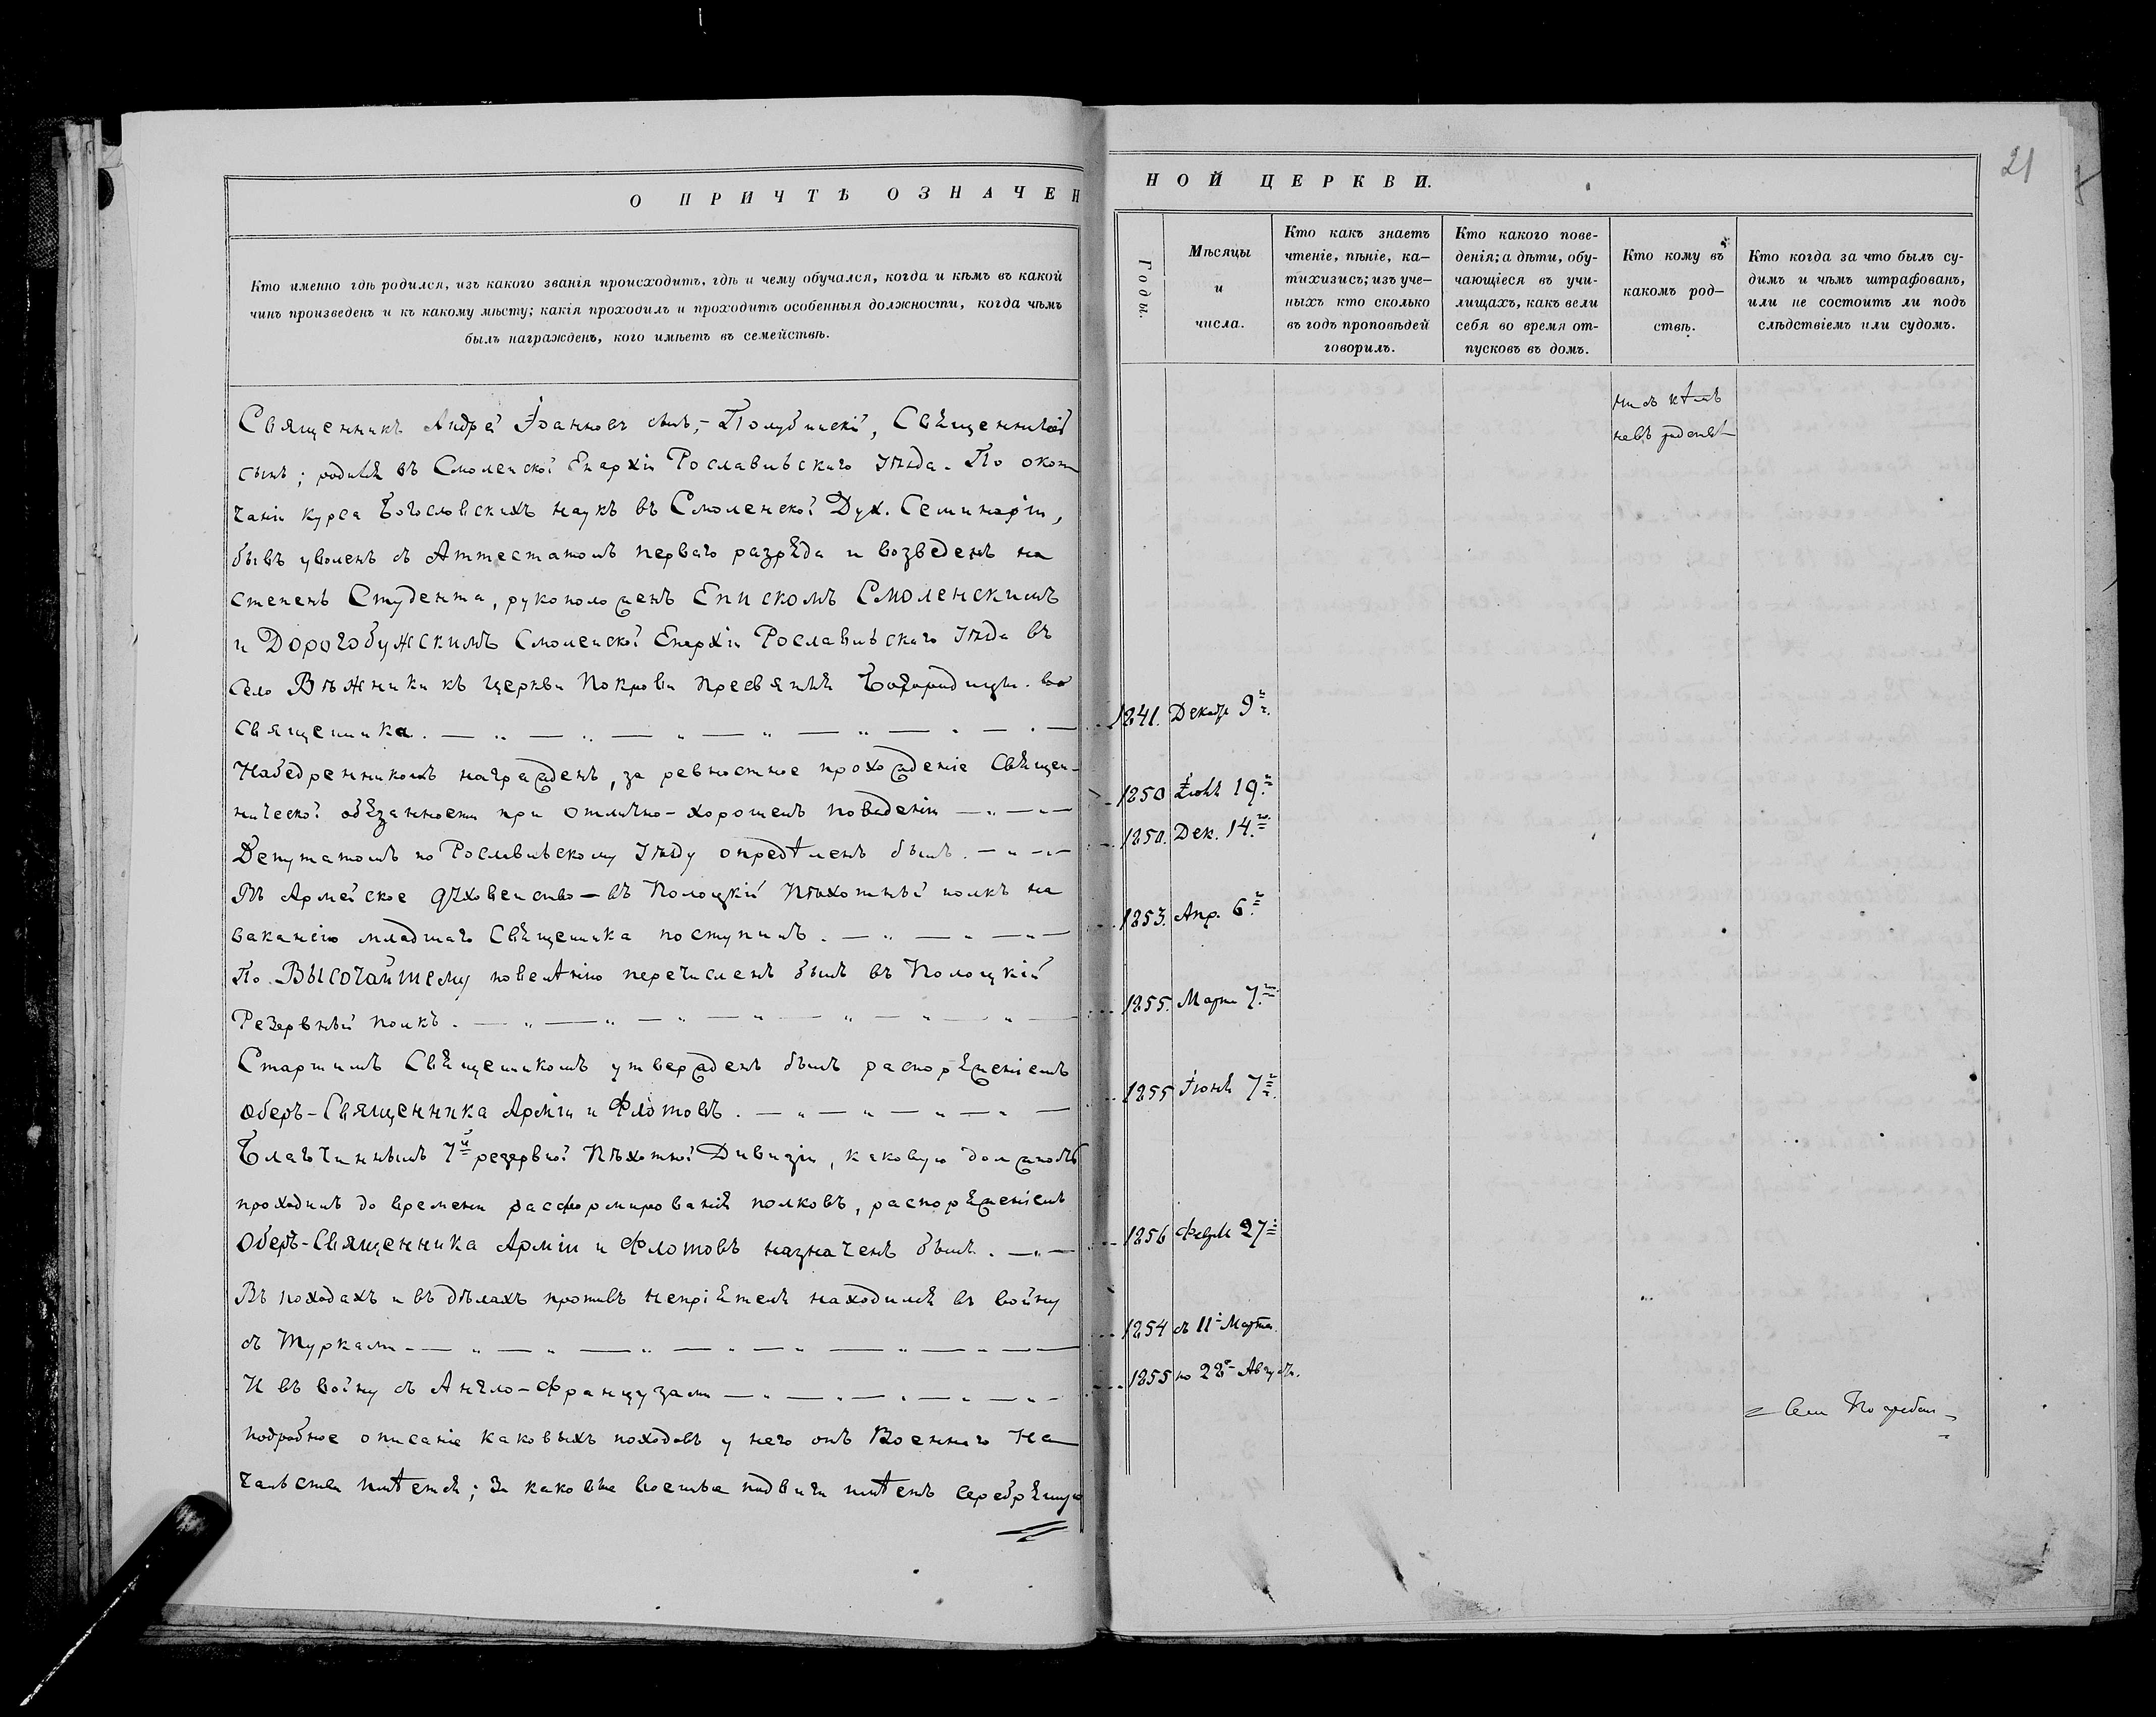 О ПРИЧТѢ ОЗНАЧЕН
НОЙ ЦЕРКВИ.
21
Кто именно гдѣ родился, изъ какого званія происходитъ, гдѣ и чему обучался, когда и кѣмъ въ какой
чинъ произведенъ и къ какому мѣсту; какія проходилъ и проходитъ особенныя должности, когда чѣмъ
былъ награжденъ, кого имѣетъ въ семействѣ.
Годы.
Мѣсяцы
и
числа.
Кто какъ знаетъ
чтеніе, пѣніе, ка-
тихизисъ; изъ уче-
ныхъ кто сколько
въ годъ проповѣдей
говорилъ.
Кто какого пове-
денія; а дѣти, обу-
чающіеся въ учи-
лищахъ, какъ вели
себя во время от-
пусковъ въ домъ.
Кто кому въ
какомъ род-
ствѣ.
Кто когда за что былъ су-
димъ и чѣмъ штрафованъ,
или не состоитъ ли подъ
слѣдствіемъ или судомъ.
Священникъ Андрей Іоанновъ сынъ, Священничій
сынъ; родился въ Смоленской Епархіи Рославльскаго Уѣзда. По окон
чаніи курса Богословскихъ наукъ въ Смоленской Дух. Семинаріи,
бывъ уволенъ съ Аттестатомъ перваго разряда и возведенъ на
степень Студента, рукоположенъ Епископомъ Смоленскимъ
и Дорогобужскимъ Смоленской Епархіи Рославльскаго Уѣзда въ
село къ церкви Покрова Пресвятыя Богородицы во
Священника.
1841. Декабр. 9
Набедренникомъ награжденъ, за ревностное прохожденіе Священ-
нической обязанности при отлично-хорошемъ поведеніи
1850 19
Депутатомъ по Рославльскому Уѣзду опредѣленъ былъ.
1850. Дек. 14.
Въ Армейское духовенство - въ Полоцкій Пѣхотный полкъ на
вакансію младшаго Священника поступилъ.
1853. Апр. 6
По Высочайшему повелѣнію перечисленъ былъ въ Полоцкій
Резервный полкъ.
1855. Марта 7
Старшимъ Священникомъ утвержденъ былъ распоряженіемъ
Оберъ-Священника Арміи и Флотовъ.
1855 Іюня 7
Благочиннымъ 7й резервной Пѣхотной Дивизіи, каковую должность
проходилъ до времени расформированія полковъ, распоряженіемъ
Оберъ-Священника Арміи и Флотовъ назначенъ былъ.
1856 Февраля 27
Въ походахъ и въ дѣлахъ противъ непріятеля находился въ войну
съ Турками
1854 съ 11 Марта
И въ войну съ Англо-Французами
1855 по 28 Августа.
подробное описаніе каковыхъ походовъ у него отъ Военнаго На
чальства имѣется; За каковые военные подвиги имѣетъ серебряную
Ни съ кѣмъ
не въ родствѣ